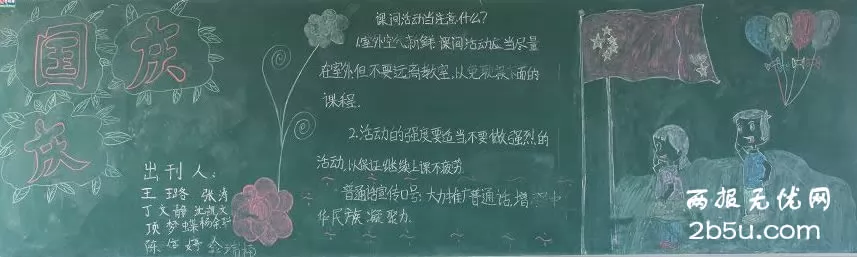 国庆
庆
出刊人:
王璐 张涛
丁文静
项梦蝶
陈 婷
课间活动当注意什么?
1.室外空气新鲜 课间活动应当尽量
在室外但不要远离教室,以免耽误下面的
课程.
2.活动的强度要适当不要做强烈的
活动,以保证继续上课不疲劳
普通话宣传口号:大力推广普通话,增强中
华民族凝聚力.
两报无忧网
2b5u.com